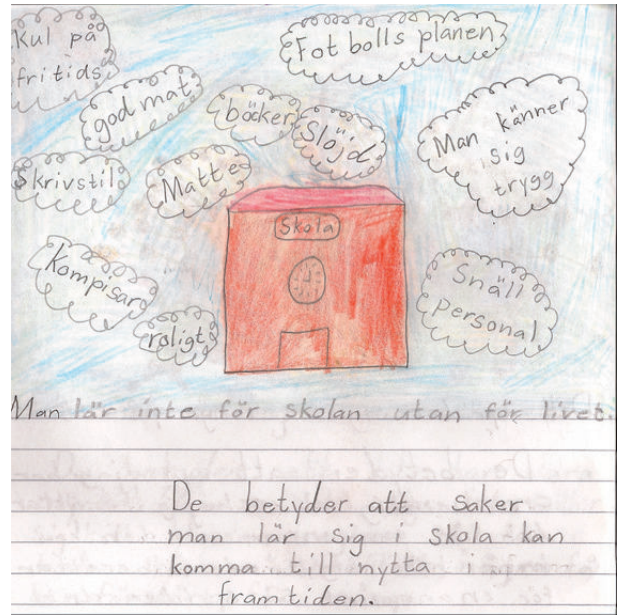 Kul på
fritids
Fotbolls planen
god mat
böcker
Slöjd
Man känner
sig
trygg
Skrivstil
Matte
Skola
Kompisar
roligt
Snäll
personal
Man lär inte för skolan utan för livet.
De betyder att saker
man lär sig i skola kan
komma till nytta i
framtiden.